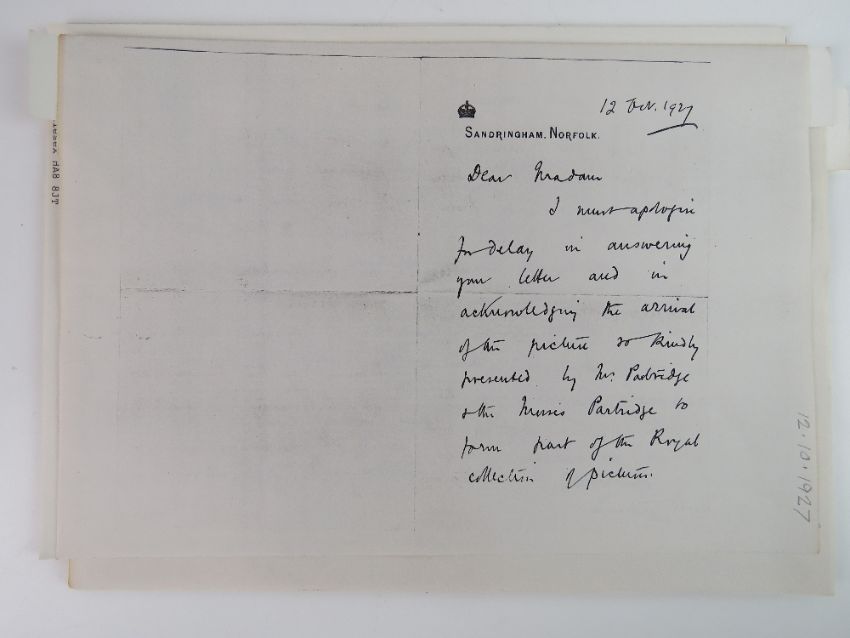 12 Oct. 1927
SANDRINGHAM. NORFOLK.
Dear Madam
I must apologise
for delay in answering
your letter and in
acknowledging the arrival
of the picture so kindly
presented by Mr. Partridge
& the Misses Partridge to
form part of the Royal
collection of pictures.
12.10.1927
HA8 8JT